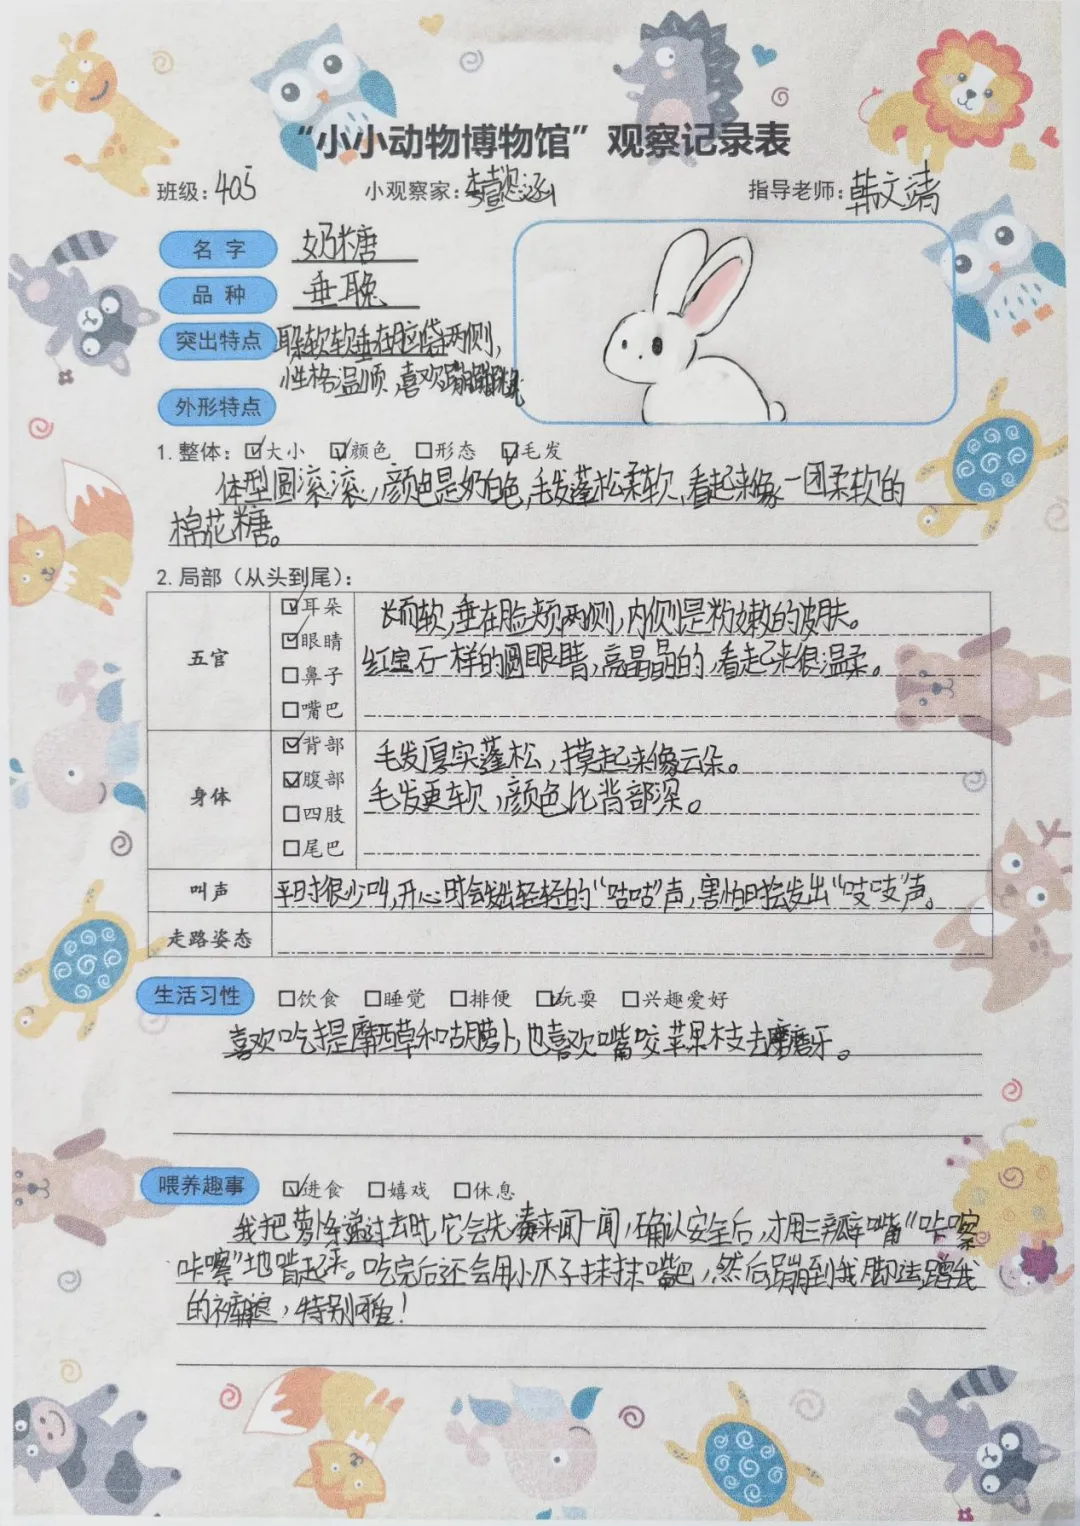 “小小动物博物馆”观察记录表
班级:405 小观察家: 指导老师:韩文靖
名字 奶糖
品种 垂耳兔
突出特点 耳朵软软垂在脸袋两侧,
性格温顺,喜欢蹦蹦跳跳
外形特点
1.整体: ☑大小 ☑颜色 □形态 ☑毛发
体型圆滚滚,颜色是奶白色,毛发蓬松柔软,看起来像一团柔软的
棉花糖。
2.局部(从头到尾):
五官
☑耳朵 长而软,垂在脸颊两侧,内侧是粉嫩的皮肤。
☑眼睛 红宝石一样的圆眼睛,亮晶晶的,看起来很温柔。
□鼻子
□嘴巴
身体
☑背部 毛发厚实蓬松,摸起来像云朵。
☑腹部 毛发更软,颜色比背部深。
□四肢
□尾巴
叫声 平时很少叫,开心时会发出轻轻的“咕咕”声,害怕时会发出“吱吱”声。
走路姿态
生活习性 □饮食 □睡觉 □排便 ☑玩耍 □兴趣爱好
喜欢吃提摩西草和胡萝卜,也喜欢嘴咬苹果枝去磨牙。
喂养趣事 ☑进食 □嬉戏 □休息
我把萝卜条递过去时,它会先凑来闻一闻,确认安全后,才用三瓣嘴“咔嚓
咔嚓”地啃起来。吃完后还会用小爪子抹抹嘴巴,然后蹦到我脚边蹭我
的裤腿,特别可爱!